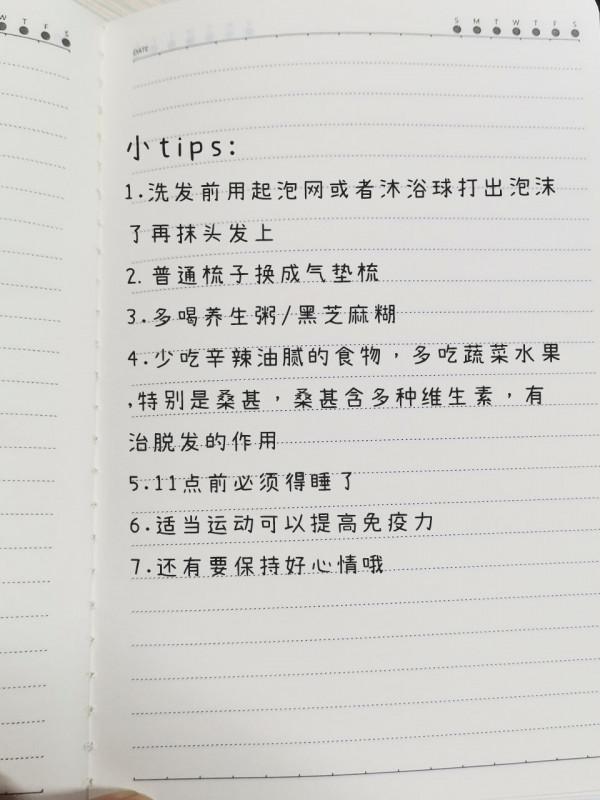 W T F S
DATE
S M T W T F S
小tips:
1.洗发前用起泡网或者沐浴球打出泡沫
了再抹头发上
2.普通梳子换成气垫梳
3.多喝养生粥/黑芝麻糊
4.少吃辛辣油腻的食物，多吃蔬菜水果
,特别是桑甚，桑甚含多种维生素，有
治脱发的作用
5.11点前必须得睡了
6.适当运动可以提高免疫力
7.还有要保持好心情哦